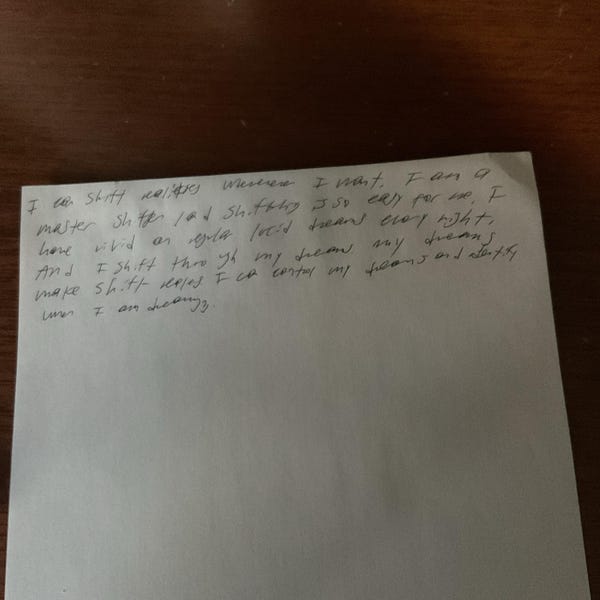 I can shift realities whenever I want, I am a
master shifter and shifting is so easy for me, I
have vivid an regular lucid dreams every night,
And I shift through my dreams my dreams
make shift I can control my dreams and identify
when I am dreaming.